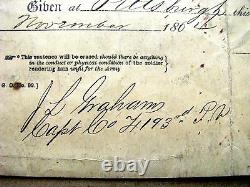 Given at Pittsburgh this
November 186
☞ This sentence will be erased should there be anything
in the conduct or physical condition of the soldier
rendering him unfit for the Army.
J L Graham
Capt Co F 193rd P.V.